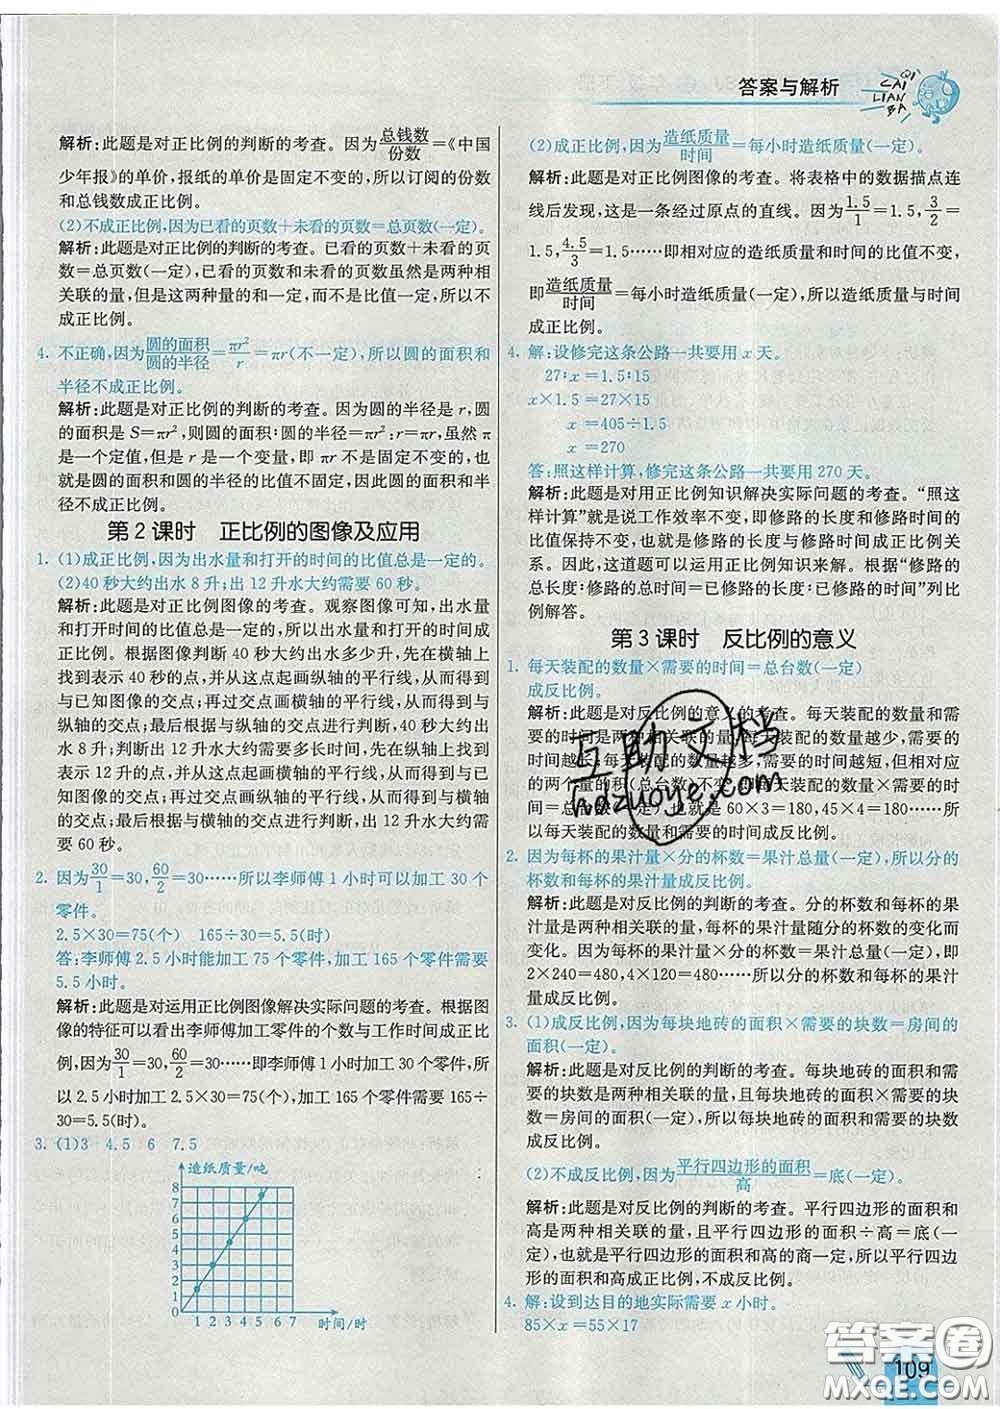 答案与解析
QI
CAI
LIAN
BA
解析:此题是对正比例的判断的考查。因为总钱数/份数=《中国
少年报》的单价,报纸的单价是固定不变的,所以订阅的份数
和总钱数成正比例。
(2)不成正比例,因为已看的页数+未看的页数=总页数(一定)。
解析:此题是对正比例的判断的考查。已看的页数+未看的页
数=总页数(一定),已看的页数和未看的页数虽然是两种相
关联的量,但是这两种量的和一定,而不是比值一定,所以不
成正比例。
4. 不正确,因为圆的面积/圆的半径=πr²/r=πr(不一定),所以圆的面积和
半径不成正比例。
解析:此题是对正比例的判断的考查。因为圆的半径是 r,圆
的面积是 S=πr²,则圆的面积:圆的半径=πr²:r=πr,虽然 π
是一个定值,但是 r 是一个变量,即 πr 不是一个固定的值,也
就是圆的面积和圆的半径的比值不固定,因此圆的面积和圆
的半径不成正比例。
第2课时 正比例的图像及应用
1. (1)成正比例,因为出水量和打开的时间的比值总是一定的。
(2)40 秒大约出水 8 升;出 12 升水大约需要 60 秒。
解析:此题是对正比例图像的考查。观察图像可知,出水量
和打开时间的比值总是一定的,所以出水量和打开的时间成
正比例。根据图像判断 40 秒大约出水多少升,先在横轴上
找到表示 40 秒的点,从这点起画纵轴的平行线,从而找到与
已知图像的交点;再过交点画横轴的平行线,从而找到与
纵轴的交点;最后根据与纵轴的交点进行判断,40 秒大约出
水 8 升;判断出 12 升水大约需要多长时间,先在纵轴上找到
表示 12 升的点,从这点起画横轴的平行线,从而找到与
已知图像的交点;再过交点画纵轴的平行线,从而找到与横轴
的交点;最后根据与横轴的交点进行判断,出 12 升水大约
需要 60 秒。
2. 因为30/1=30,60/2=30……所以李师傅 1 小时可以加工 30 个
零件。
2.5×30=75(个) 165÷30=5.5(时)
答:李师傅 2.5 小时能加工 75 个零件,加工 165 个零件需要
5.5 小时。
解析:此题是对运用正比例图像解决实际问题的考查。根据图
像的特征可以看出李师傅加工零件的个数与工作时间成正比
例,因为30/1=30,60/2=30……即李师傅 1 小时加工 30 个零件,所
以 2.5 小时加工 2.5×30=75(个),加工 165 个零件要 165÷
30=5.5(时)。
3. (1)3 4.5 6 7.5
造纸质量/吨
8
7
6
5
4
3
2
1
0
1 2 3 4 5 6 7 时间/时
(2)成正比例,因为造纸质量/时间=每小时造纸质量(一定)。
解析:此题是对正比例图像的考查。将表格中的数据描点连
线后发现,这是一条经过原点的直线。因为1.5/1=1.5,3/2=
1.5,4.5/3=1.5……即相对应的造纸质量和时间的比值不变,
即造纸质量/时间=每小时造纸质量(一定),所以造纸质量与时间
成正比例。
4. 解:设修完这条公路一共要用 x 天。
27:x=1.5:15
x×1.5=27×15
x=405÷1.5
x=270
答:照这样计算,修完这条公路一共要用 270 天。
解析:此题是对用正比例知识解决实际问题的考查。“照这
样计算”就是说工作效率不变,即修路的长度和修路时间的
比值保持不变,也就是修路的长度与修路时间成正比例关
系。因此,这道题可以运用正比例知识来解。根据“修路的
总长度:修路的总时间=已修路的长度:已修路的时间”列比
例解答。
第3课时 反比例的意义
1. 每天装配的数量×需要的时间=总台数(一定)
成反比例。
解析:此题是对反比例的意义的考查。每天装配的数量和需
要的时间是两种相关联的量,每天装配的数量越少,需要的
时间越长;每天装配的数量越多,需要的时间越短,但相对应
的两个量的积(总台数)不变,即每天装配的数量×需要的时
间=总台数(一定),也就是 60×3=180,45×4=180……所
以每天装配的数量和需要的时间成反比例。
2. 因为每杯的果汁量×分的杯数=果汁总量(一定),所以分的
杯数和每杯的果汁量成反比例。
解析:此题是对反比例的判断的考查。分的杯数和每杯的果汁
量是两种相关联的量,每杯的果汁量随分的杯数的变化而
变化。因为每杯的果汁量×分的杯数=果汁总量(一定),即
2×240=480,4×120=480……所以分的杯数和每杯的果汁
量成反比例。
3. (1)成反比例,因为每块地砖的面积×需要的块数=房间的
面积(一定)。
解析:此题是对反比例的判断的考查。每块地砖的面积和需
要的块数是两种相关联的量,且每块地砖的面积×需要的块
数=房间的面积(一定),所以每块地砖的面积和需要的块数
成反比例。
(2)不成反比例,因为平行四边形的面积/高=底(一定)。
解析:此题是对反比例的判断的考查。平行四边形的面积和
高是两种相关联的量,且平行四边形的面积÷高=底(一
定),也就是平行四边形的面积和高的商一定,所以平行四边
形的面积和高成正比例,不成反比例。
4. 解:设到达目的地实际需要 x 小时。
85×x=55×17
109
互助文档
hdzuoye.com
答案圈
MXQE.COM